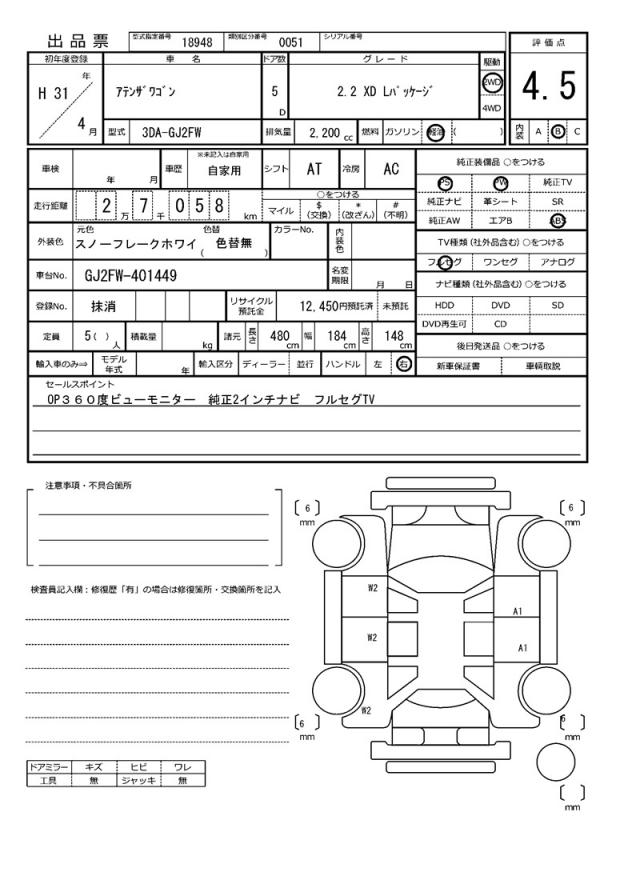 出品票 型式指定番号 18948 類別区分番号 0051 シリアル番号
初年度登録 車名 ドア数 グレード 駆動 評価点
H 31 年 4 月 アテンザワゴン 5 D 2.2 XD Lパッケージ 2WD 4WD 4.5
型式 3DA-GJ2FW 排気量 2,200 cc 燃料 ガソリン 軽油 ( ) 内装 A B C
車検 年 月 車歴 ※未記入は自家用 自家用 シフト AT 冷房 AC 純正装備品 ○をつける
PS PW 純正TV
走行距離 2 万 7 千 0 5 8 km ○をつける 純正ナビ 革シート SR
マイル $ (交換) * (改ざん) # (不明) 純正AW エアB ABS
外装色 元色 スノーフレークホワイ 色替 ( 色替無 ) カラーNo. 内装色 TV種類 (社外品含む) ○をつける
フルセグ ワンセグ アナログ
車台No. GJ2FW-401449 名変期限 月 日 ナビ種類 (社外品含む) ○をつける
登録No. 抹消 リサイクル預託金 12,450円預託済 未預託 HDD DVD SD
DVD再生可 CD
定員 5 ( ) 人 積載量 kg 諸元 長さ 480 cm 幅 184 cm 高さ 148 cm 後日発送品 ○をつける
輸入車のみ⇒ モデル年式 年 輸入区分 ディーラー 並行 ハンドル 左 右 新車保証書 車輌取説
セールスポイント
OP360度ビューモニター 純正2インチナビ フルセグTV
注意事項・不具合箇所
6 mm 6 mm
検査員記入欄：修復歴「有」の場合は修復箇所・交換箇所を記入
W2
A1
W2
A1
W2
6 mm 6 mm
ドアミラー キズ ヒビ ワレ
工具 無 ジャッキ 無
mm